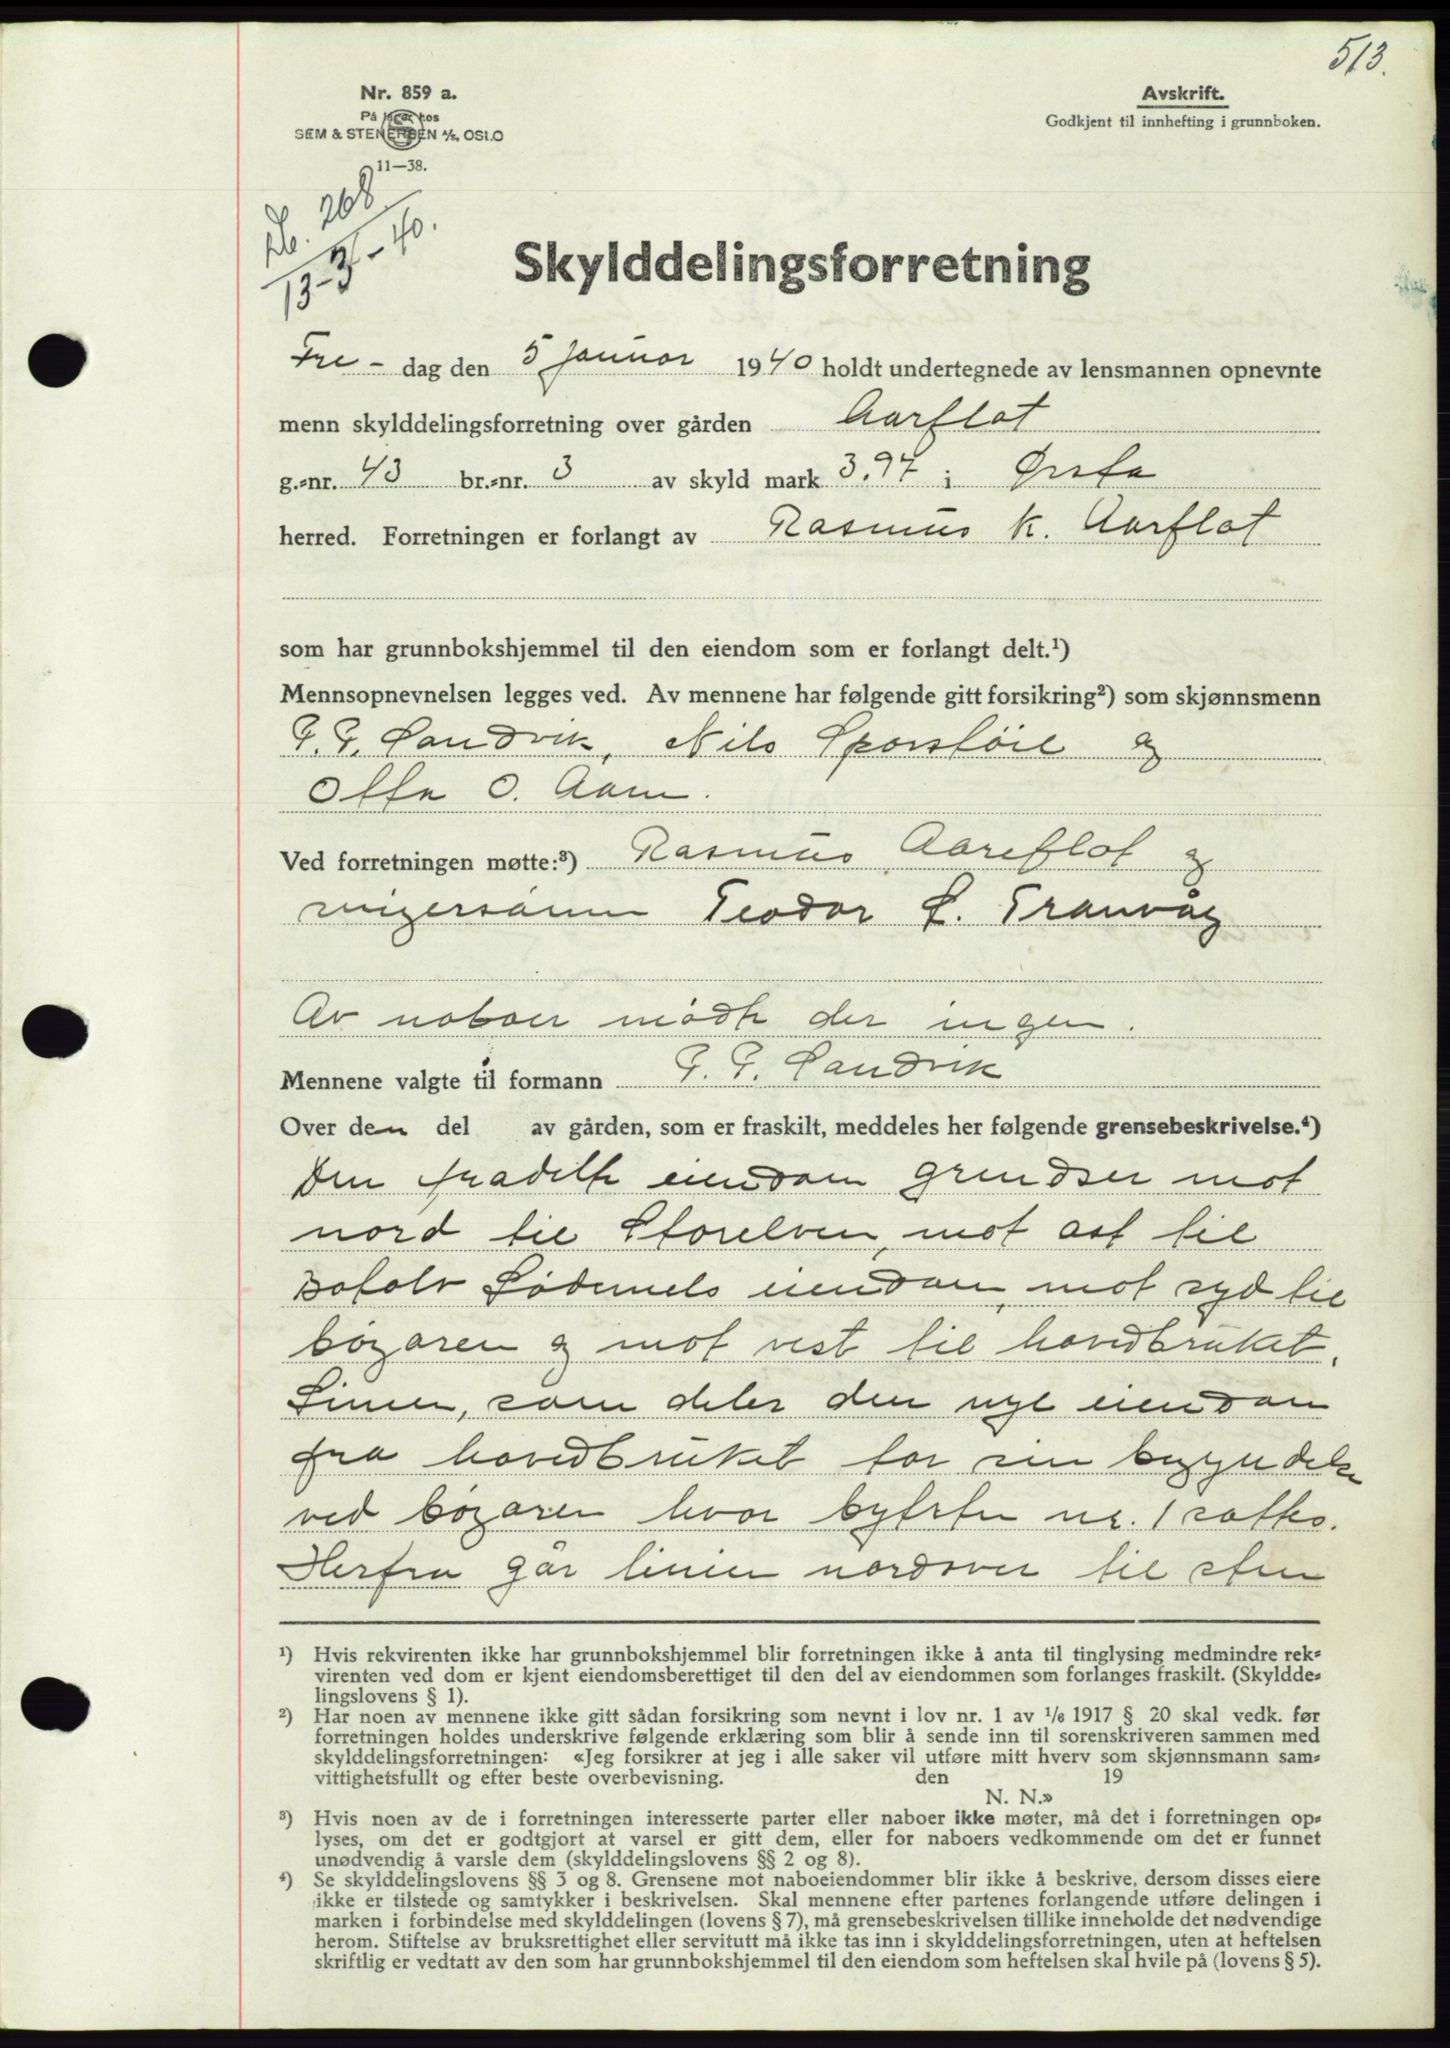 513.
Nr. 859 a.
På lager hos
SEM & STENERSEN A/S, OSLO
11—38.
Avskrift.
Godkjent til innhefting i grunnboken.
268
13-3-40.
Skylddelingsforretning
Fre- dag den 5 januar 1940 holdt undertegnede av lensmannen opnevnte
menn skylddelingsforretning over gården Aarflot
g.=nr. 43 br.=nr. 3 av skyld mark 3.97 i Ørsta
herred. Forretningen er forlangt av Rasmus K. Aarflot
som har grunnbokshjemmel til den eiendom som er forlangt delt.¹)
Mennsopnevnelsen legges ved. Av mennene har følgende gitt forsikring²) som skjønnsmenn
P. P. Sandvik, Nils Sporstøil og
Otto O. Aam.
Ved forretningen møtte:³) Rasmus Aareflot og
svigersønn Teodor S. Tranvåg
Av naboer mødte der ingen.
Mennene valgte til formann P. P. Sandvik
Over den del av gården, som er fraskilt, meddeles her følgende grensebeskrivelse.⁴)
Den fradelte eiendom grendser mot
nord til Storelven, mot ost til
Botolv eiendom, mot syd til
bøgaren og mot vest til hovedbruket.
Linien, som deler den nye eiendom
fra hovedbruket tar sin begyndelse
ved bøgaren hvor bytesten nr. 1 sattes.
Herfra går linien nordover til sten
¹) Hvis rekvirenten ikke har grunnbokshjemmel blir forretningen ikke å anta til tinglysing medmindre rek=
virenten ved dom er kjent eiendomsberettiget til den del av eiendommen som forlanges fraskilt. (Skyldde=
lingslovens § 1).
²) Har noen av mennene ikke gitt sådan forsikring som nevnt i lov nr. 1 av 1/6 1917 § 20 skal vedk. før
forretningen holdes underskrive følgende erklæring som blir å sende inn til sorenskriveren sammen med
skylddelingsforretningen: «Jeg forsikrer at jeg i alle saker vil utføre mitt hverv som skjønnsmann sam=
vittighetsfullt og efter beste overbevisning. den 19
N. N.»
³) Hvis noen av de i forretningen interesserte parter eller naboer ikke møter, må det i forretningen op=
lyses, om det er godtgjort at varsel er gitt dem, eller for naboers vedkommende om det er funnet
unødvendig å varsle dem (skylddelingslovens §§ 2 og 8).
⁴) Se skylddelingslovens §§ 3 og 8. Grensene mot naboeiendommer blir ikke å beskrive, dersom disses eiere
ikke er tilstede og samtykker i beskrivelsen. Skal mennene efter partenes forlangende utføre delingen i
marken i forbindelse med skylddelingen (lovens § 7), må grensebeskrivelsen tillike inneholde det nødvendige
herom. Stiftelse av bruksrettighet eller servitutt må ikke tas inn i skylddelingsforretningen, uten at heftelsen
skriftlig er vedtatt av den som har grunnbokshjemmel til den eiendom som heftelsen skal hvile på (lovens § 5).